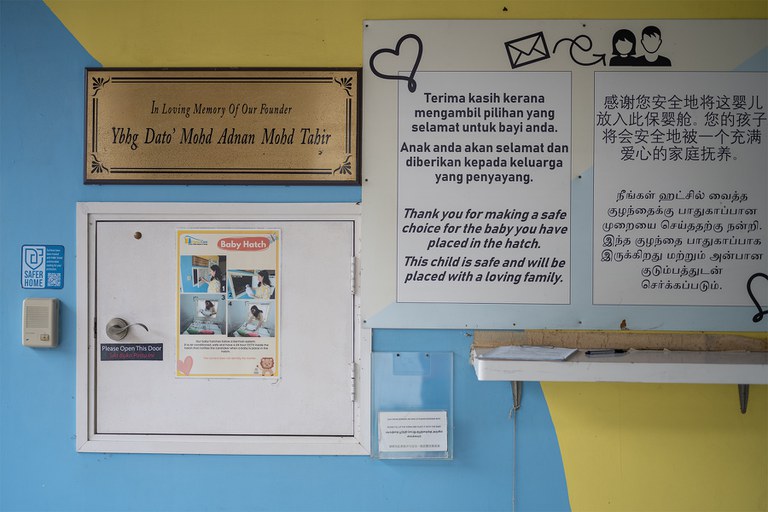 In Loving Memory Of Our Founder
Ybhg Dato' Mohd Adnan Mohd Tahir
Terima kasih kerana
mengambil pilihan yang
selamat untuk bayi anda.
Anak anda akan selamat dan
diberikan kepada keluarga
yang penyayang.
Thank you for making a safe
choice for the baby you have
placed in the hatch.
This child is safe and will be
placed with a loving family.
感谢您安全地将这婴儿
放入此保婴舱。您的孩子
将会安全地被一个充满
爱心的家庭抚养。
நீங்கள் ஹட்சில் வைத்த
குழந்தைக்கு பாதுகாப்பான
முறையை செய்ததற்கு நன்றி.
இந்த குழந்தை பாதுகாப்பாக
இருக்கிறது மற்றும் அன்பான
குடும்பத்துடன்
சேர்க்கப்படும்.
Baby Hatch
SAFER
HOME
Please Open This Door